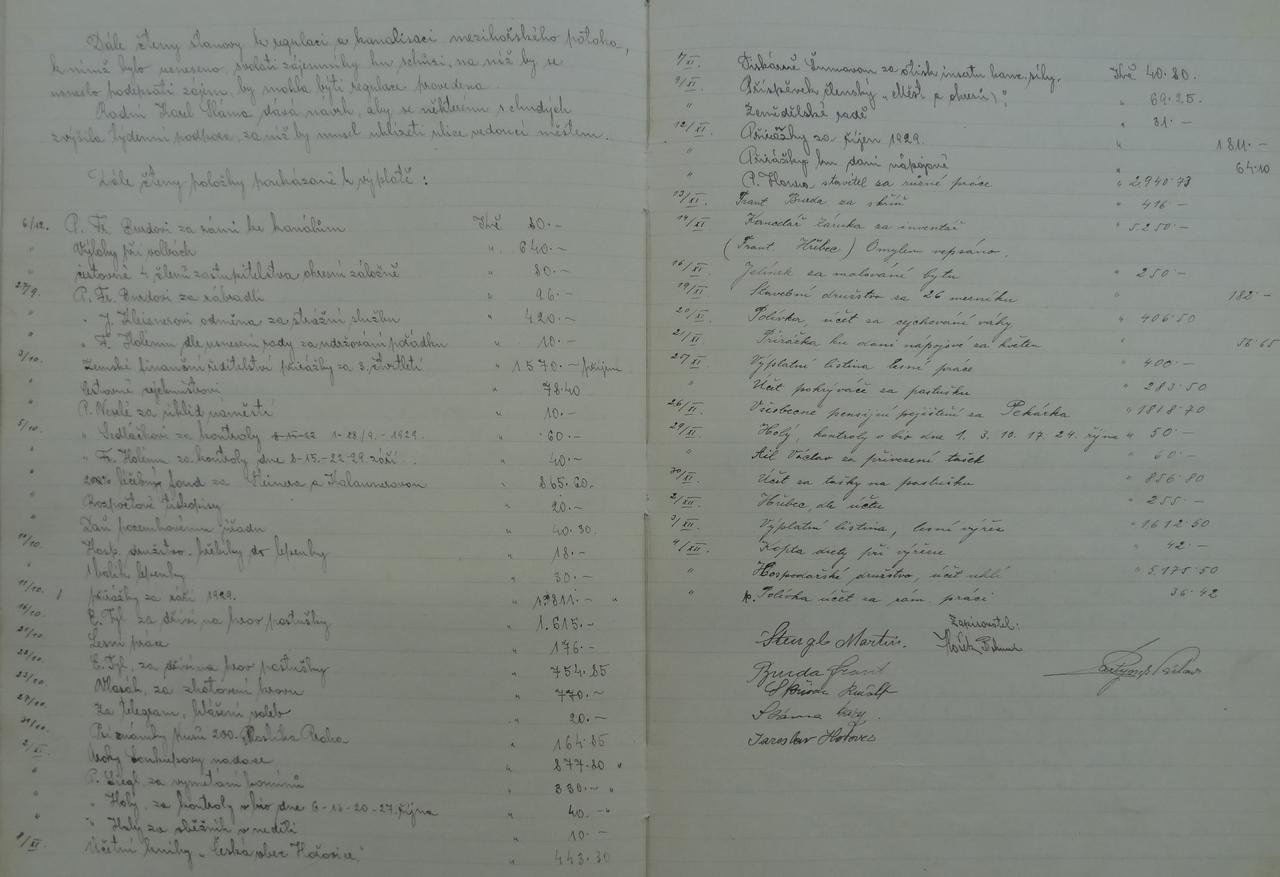 Dále čteny stanovy k regulaci a kanalisaci mezihořského potoka,
k nimž bylo usneseno, svolati zájemníky ku schůzi, na níž by se
usneslo podepsati zájem, by mohla býti regulace provedena.
Radní Karel Sláma dává návrh, aby se některým s chudých
zvýšila týdenní podpora, za níž by musel uklízeti ulice vedoucí městem.
Dále čteny položky poukázané k výplatě:
6/12. P. Fr. Burdovi za rámi ke kanálům Kč 80.–
" Výlohy při volbách " 640.–
" cestovné 4 členů zastupitelstva okresní záložně " 80.–
27/9. P. Fr. Burdovi za zábradlí " 96.–
" J. Kleisnerovi odměna za strážní službu " 420.–
" F. Holému dle usnesení rady za udržování pořádku " 10.–
3/10. Zemské finanční ředitelství přirážky za 3. čtvrtletí " 1570.– příjem
" Cestovné " 78.40
" P. Neulé za úklid náměstí " 10.–
5/10. " Sedláčkovi za kontroly 1-28/9.-1929. " 60.–
" " Fr. Holému za kontroly dne 8-15.-22-29. září. " 40.–
" léčebný fond za Steinera a Kalaunerovou " 865.60.
" Rozpočtové tiskopisy " 20.–
" Daň pozemkovému úřadu " 40.30.
10/10. Hosp. družstvo. hřebíky do lepenky " 18.–
" 1 balík lepenky " 30.–
11/10. přirážky za září 1929. " 1.811.– "
16/10. E. Tyl za dříví na krov pastušky " 1.615.–
21/10. Lesní práce " 176.–
23/10. E. Tyl, za dříví na krov pastušky " 754.85
25/10. Vlasák, za zhotovení krovu " 770.–
27/10. Za telegram, hlášení voleb " 20.–
30/10. Psí známky kusů 200. Praha " 164.85
2/XI. nadace " 877.80 "
" P. Siegl za vymetání komínů " 330.– "
" " Holý, za kontroly v bio dne 6-13-20-27. října " 40.– "
" " Holý za oběžník v neděli " 10.–
8/XI. Účetní knihy „Česká obec Hořovice." " 443.30
9/XI. Tiskárně za otisk insertu kanc. síly. Kč 40.80.
9/XI. Příspěvek členský „Měst a okresů". " 69.25.
" Zemědělské radě " 31.–
12/XI. Přirážky za říjen 1929. " 1811.–
" Přirážky ku dani nápojové " 64.10
" P. stavitel za různé práce " 2.940.73
13/XI. Frant. Burda za skříň " 416.–
14/XI. Kancelář záruka za inventář " 5250.–
(Frant. Hřebec) Omylem vepsáno.
16/XI. Jelínek za malování bytu " 250.–
19/XI. Stavební družstvo za 26 mezníku " 182.–
20/XI. Polívka, účet za cejchování váhy " 406.50
21/XI. Přirážka ku dani nápojové za květen " 56.65
25/XI. Výplatní listina lesní práce " 400.–
" Účet pokrývače za pastušku " 283.50
26/XI. Všeobecné pensijní pojištění za Pekárka " 1818.70
29/XI. Holý, kontroly v bio dne 1. 3. 10. 17. 24. října " 50.–
" Václav za přivezení tašek " 60.–
30/XI. Účet za tašky na pastušku " 856.80
2/XII. Hřebec, dle účtu " 255.–
3/XII. Výplatní listina, lesní výřez " 1612.50
4/XII. Kopta diety při výřezu " 42.–
" Hospodářské družstvo, účet uhlí " 5.175.50
" p. Polívka účet za rám. práci 36.42
Zapisovatel:
Stengl Martin.
Burda Frant
Rudolf
Sláma Karel.
Jaroslav